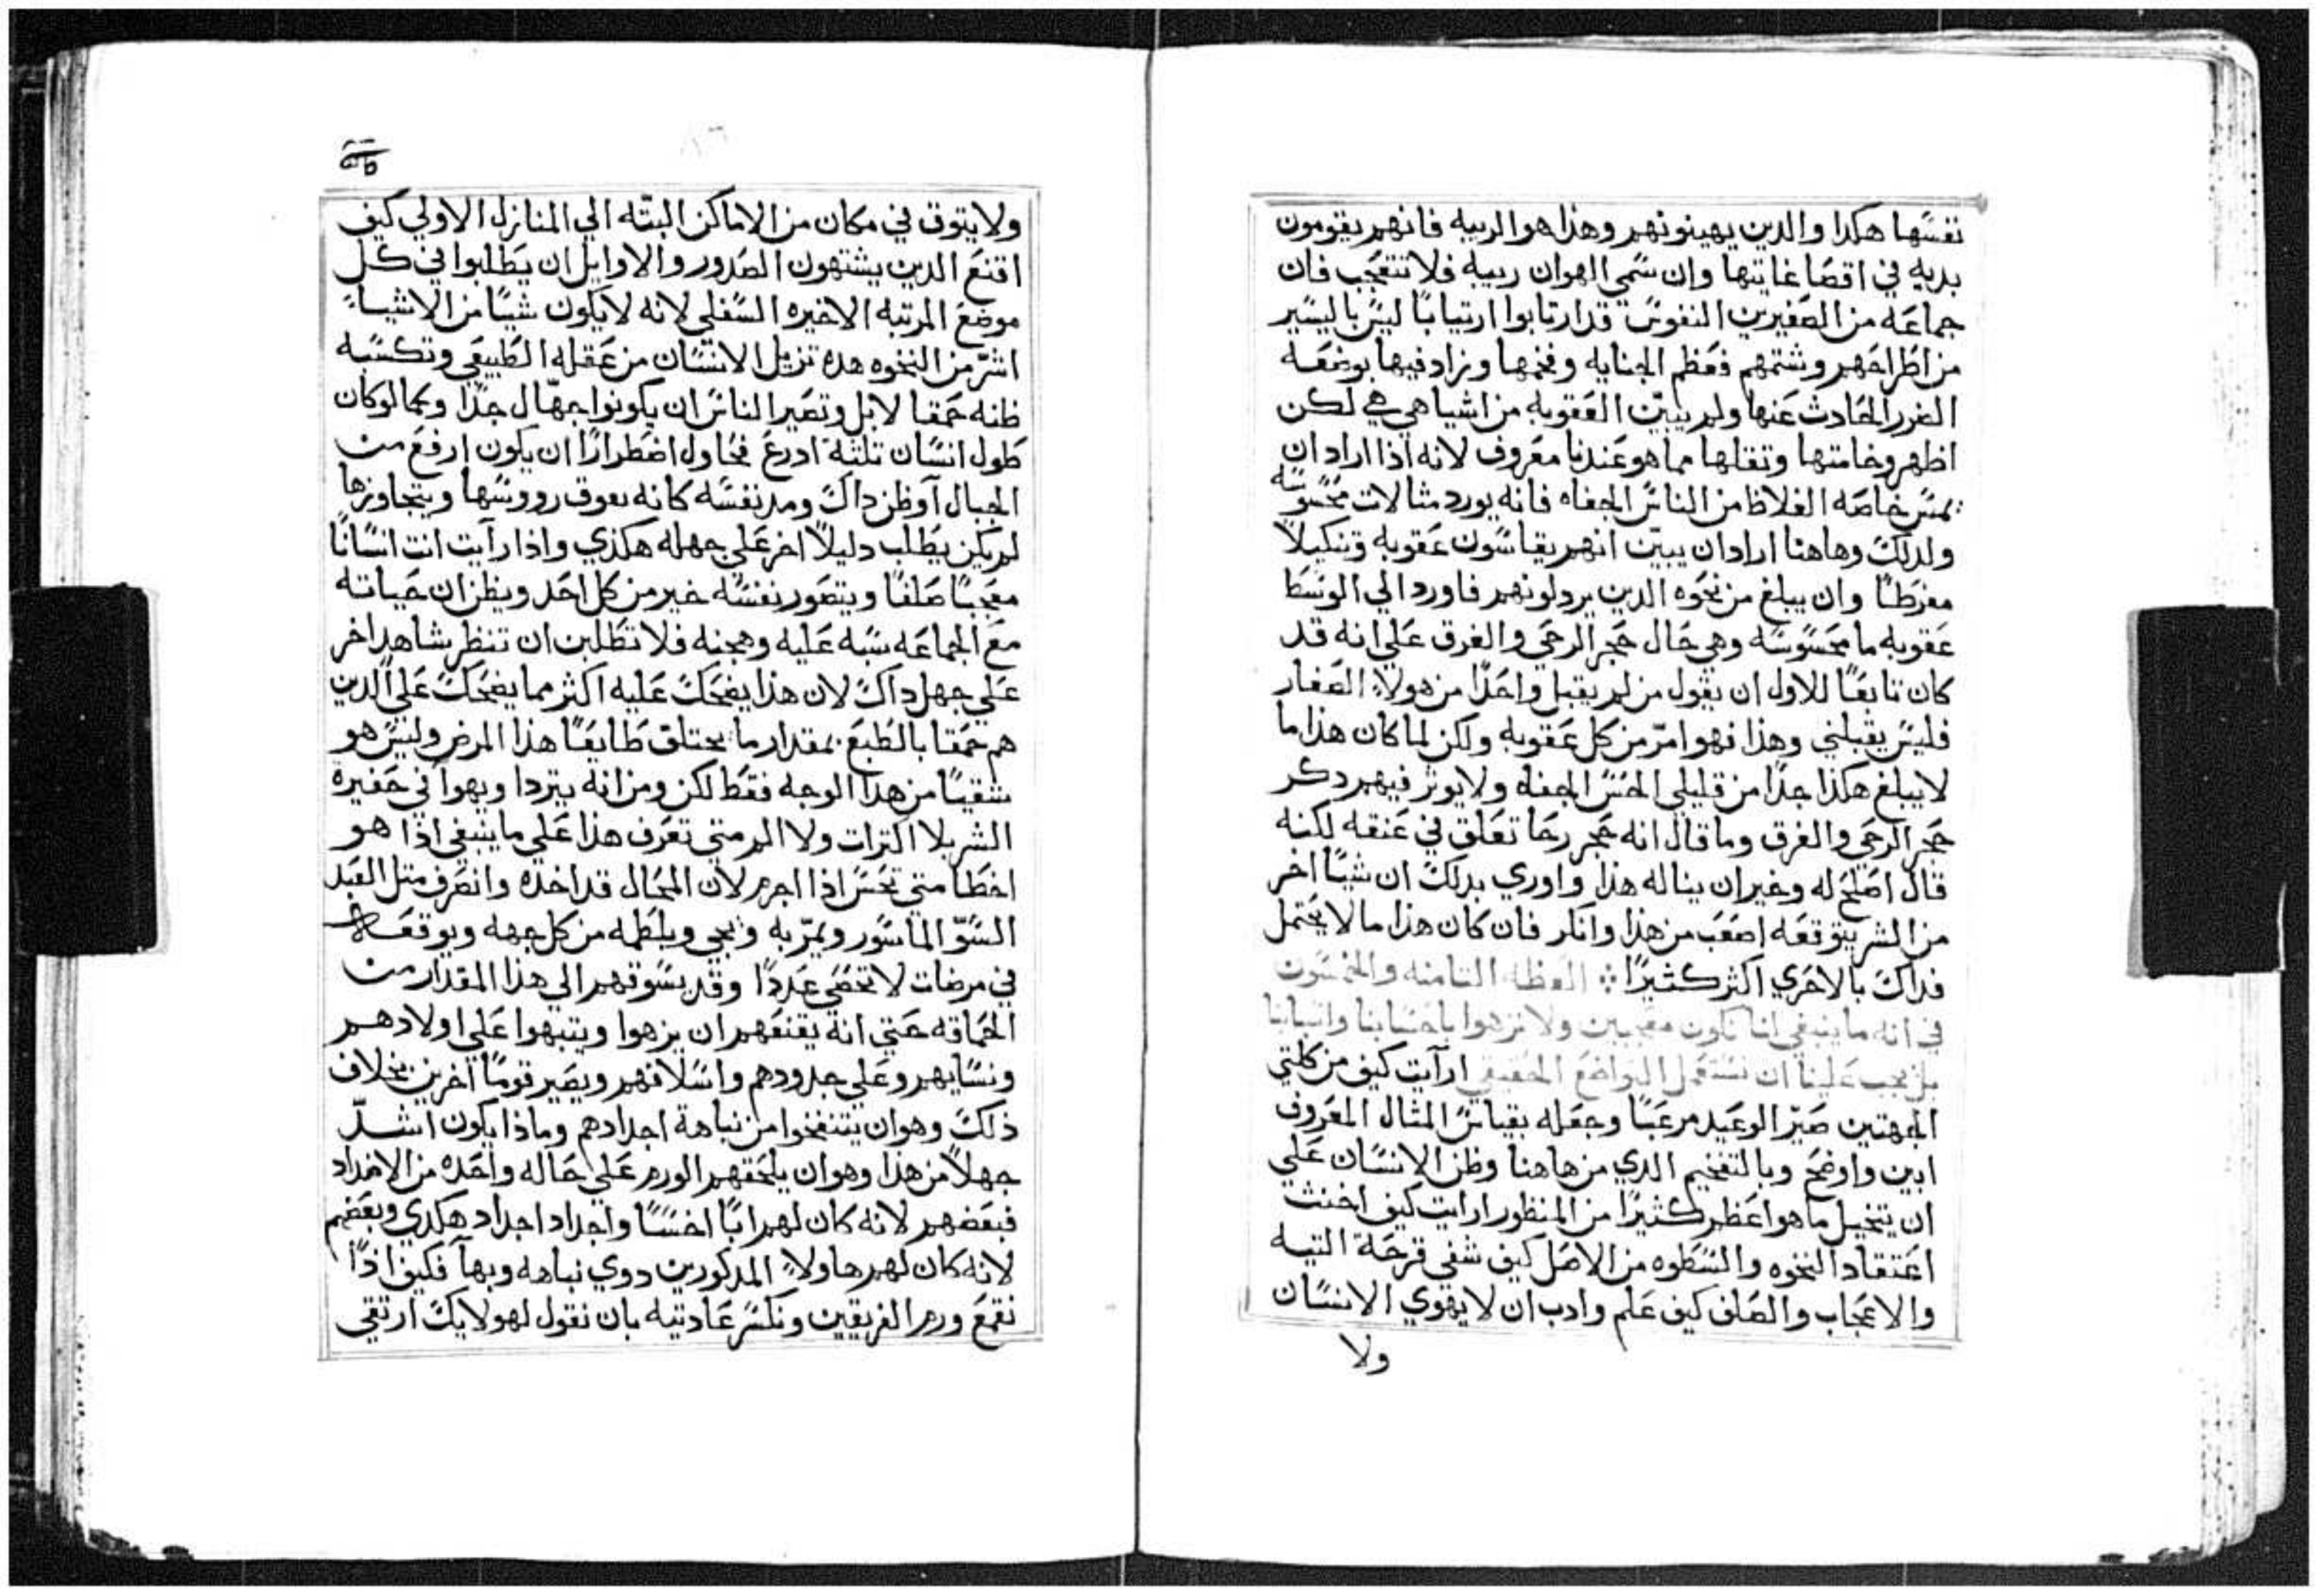 نفسها هكدا والدين يهينونهم وهذا هو الريبه فانهم يقومون
بديه في اقصا غايتها وان سمي الهوان ريبه فلا تتعجب فان
جماعه من الصغيرين النفوس قد ارتابوا ارتيابا ليس باليسير
من اطراحهم وشتمهم فعظم الجنايه وفخمها وزاد فيها بوضعه
الضرر الحادث عنها ولم يبين العقوبه من اشيا هي هي لكن
اظهر وخامتها وتقلها مما هو عندنا معروف لانه اذا اراد ان
يمس خاصه الغلاظ من الناس الجفاه فانه يورد مثالات محسوسه
ولدلك وهاهنا اراد ان يبين انهم يقاسون عقوبه وتنكيلا
مفرطا وان يبلغ من نخوه الدين يردلونهم فاورد الي الوسط
عقوبه ما محسوسه وهي حال حجر الرحي والغرق علي انه قد
كان تابعا للاول ان يقول من لم يقبل واحدا من هولاء الصغار
فليس يقبلني وهذا فهو امر من كل عقوبه ولكن لما كان هذا ما
لا يبلغ هكذا جدا من قليلي الحس الجفاه ولا يوثر فيهم دكر
حجر الرحي والغرق وما قال انه حجر رحا تعلق في عنقه لكنه
قال اصلح له وخير ان يناله هذا واوري بدلك ان شيا اخر
من الشر يتوقعه اصعب من هذا وانكر فان كان هذا ما لا يحتمل
فداك بالاحري اكثر كثيرا ❖ العظه التامنه والخمسون
في انه ما ينبغي لنا نكون معجبين ولا نزهوا باحسابنا وانسابنا
بل يجب علينا ان نستعمل التواضع الحقيقي ارآيت كيف من كلتي
الجهتين صير الوعيد مرعبا وجعله بقياس المثال المعروف
ابين واوضح وبالتفخيم الدي من هاهنا وظن الانسان علي
ان يتخيل ما هو اعظم كثيرا من المنظور ارايت كيف اخنث
اعتقاد النخوه والسطوه من الاصل كيف شفي قرحة التيه
والاعجاب والصلف كيف علم وادب ان لا يهوي الانسان
ولا
ولا يتوق في مكان من الاماكن البته الي المنازل الاولي كيف
اقنع الدين يشتهون الصدور والاوايل ان يطلبوا في كل
موضع المرتبه الاخيره السفلي لانه لا يكون شيا من الاشياء
اشر من النخوه هده تزيل الانسان من عقله الطبيعي وتكسبه
ظنه حمقا لا بل وتصير الناس ان يكونوا جهال جدا وكما لو كان
طول انسان تلتة ادرع فحاول اضطرارا ان يكون ارفع من
الجبال آو ظن داك ومد نفسه كانه يفوق رووسها ويتجاوزها
لم يكن يطلب دليلا اخر علي جهله هكذي واذا رآيت انت انسانا
معجبا صلفا ويتصور نفسه خير من كل احد ويظن ان حياته
مع الجماعه سبه عليه وهجنه فلا تطلبن ان تنظر شاهدا خر
علي جهل داك لان هذا يضحك عليه اكثر مما يضحك علي الدين
هم حمقا بالطبع بمقدار ما يختلق طايعا هذا المرض وليس هو
شقيا من هدا الوجه فقط لكن ومن انه يتردا ويهوآ في حفيرة
الشر بلا اكترات ولا الم متي تعرف هذا علي ما ينبغي اذا هو
اخطا متي تحس اذا اجرم لان المحال قد اخده وانصرف متل العبد
السو الماسور ويمر به ويجي ويلطمه من كل جهه ويوقعه
في مرضات لا تحصي عددا وقد يسوقهم الي هذا المقدار من
الحماقه حتي انه يقنعهم ان يزهوا ويتبهوا علي اولادهم
ونسايهم وعلي جدودهم واسلافهم ويصير قوما آخرين بخلاف
ذلك وهو ان يتنفخوا من نباهة اجدادهم وماذا يكون اشد
جهلا من هذا وهو ان يلحقهم الورم علي حاله واحده من الاضداد
فبعضهم لانه كان لهم ابا اخسا واجداد اجداد هكدي وبعضهم
لانه كان لهم هاولاء المدكورين دوي نباهه وبهآ فكيف اذا
نقمع ورم الفريقين ونكسر عاديته بان نقول لهولايك ارتقي